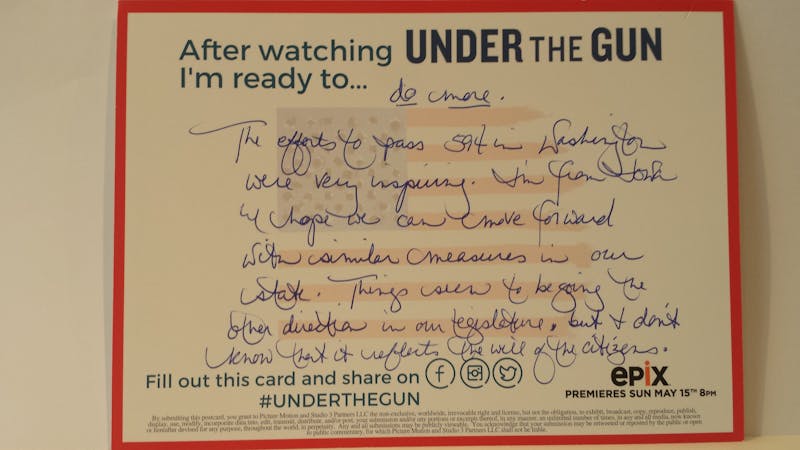 After watching UNDER THE GUN
I'm ready to...
do more.
The efforts to pass 594 in Washington
were very inspiring. I'm from
& I hope we can move forward
with similar measures in our
state. Things seem to be going the
other direction in our legislature, but I don't
know that it reflects the will of the citizens.
Fill out this card and share on
#UNDERTHEGUN
epix
PREMIERES SUN MAY 15TH 8PM
By submitting this postcard, you grant to Picture Motion and Studio 3 Partners LLC the non-exclusive, worldwide, irrevocable right and license, but not the obligation, to exhibit, broadcast, copy, reproduce, publish,
display, use, modify, incorporate data into, edit, transmit, distribute, and/or post, your submission and/or any portions or excerpts thereof, in any manner, an unlimited number of times, in any and all media, now known
or hereafter devised for any purpose, throughout the world, in perpetuity. Any and all submissions may be publicly viewable. You acknowledge that your submission may be retweeted or reposted by the public or open
to public commentary, for which Picture Motion and Studio 3 Partners LLC shall not be liable.